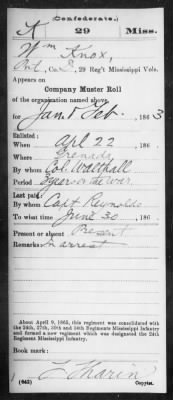 Confederate.
K 29 Miss.
Wm Knox,
Pvt, Co. , 29 Reg't Mississippi Vols.
Appears on
Company Muster Roll
of the organization named above,
for Jan & Feb, 1863
Enlisted:
When Apl 22, 186
Where Grenada
By whom Col. Walthall
Period 3 years or the war
Last paid:
By whom Capt Reynolds
To what time June 30, 186
Present or absent Present
Remarks: In arrest
About April 9, 1865, this regiment was consolidated with
the 24th, 27th, 30th and 34th Regiments Mississippi Infantry
and formed a new regiment which was designated the 24th
Regiment Mississippi Infantry.
Book mark:
(642) Copyist.